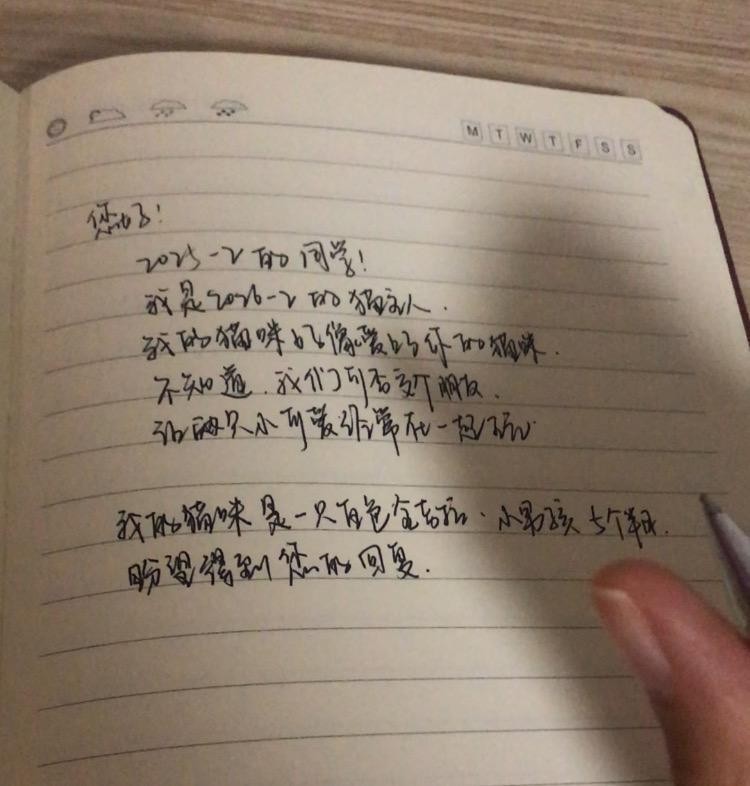 M T W T F S S
您好！
2025-2的同学！
我是2026-2的猫主人．
我的猫咪好像爱上你的猫咪．
不知道．我们可否交个朋友．
让两只小可爱经常在一起玩
我的猫咪是一只白色全吉、小男孩 5个半月．
盼望得到您的回复．